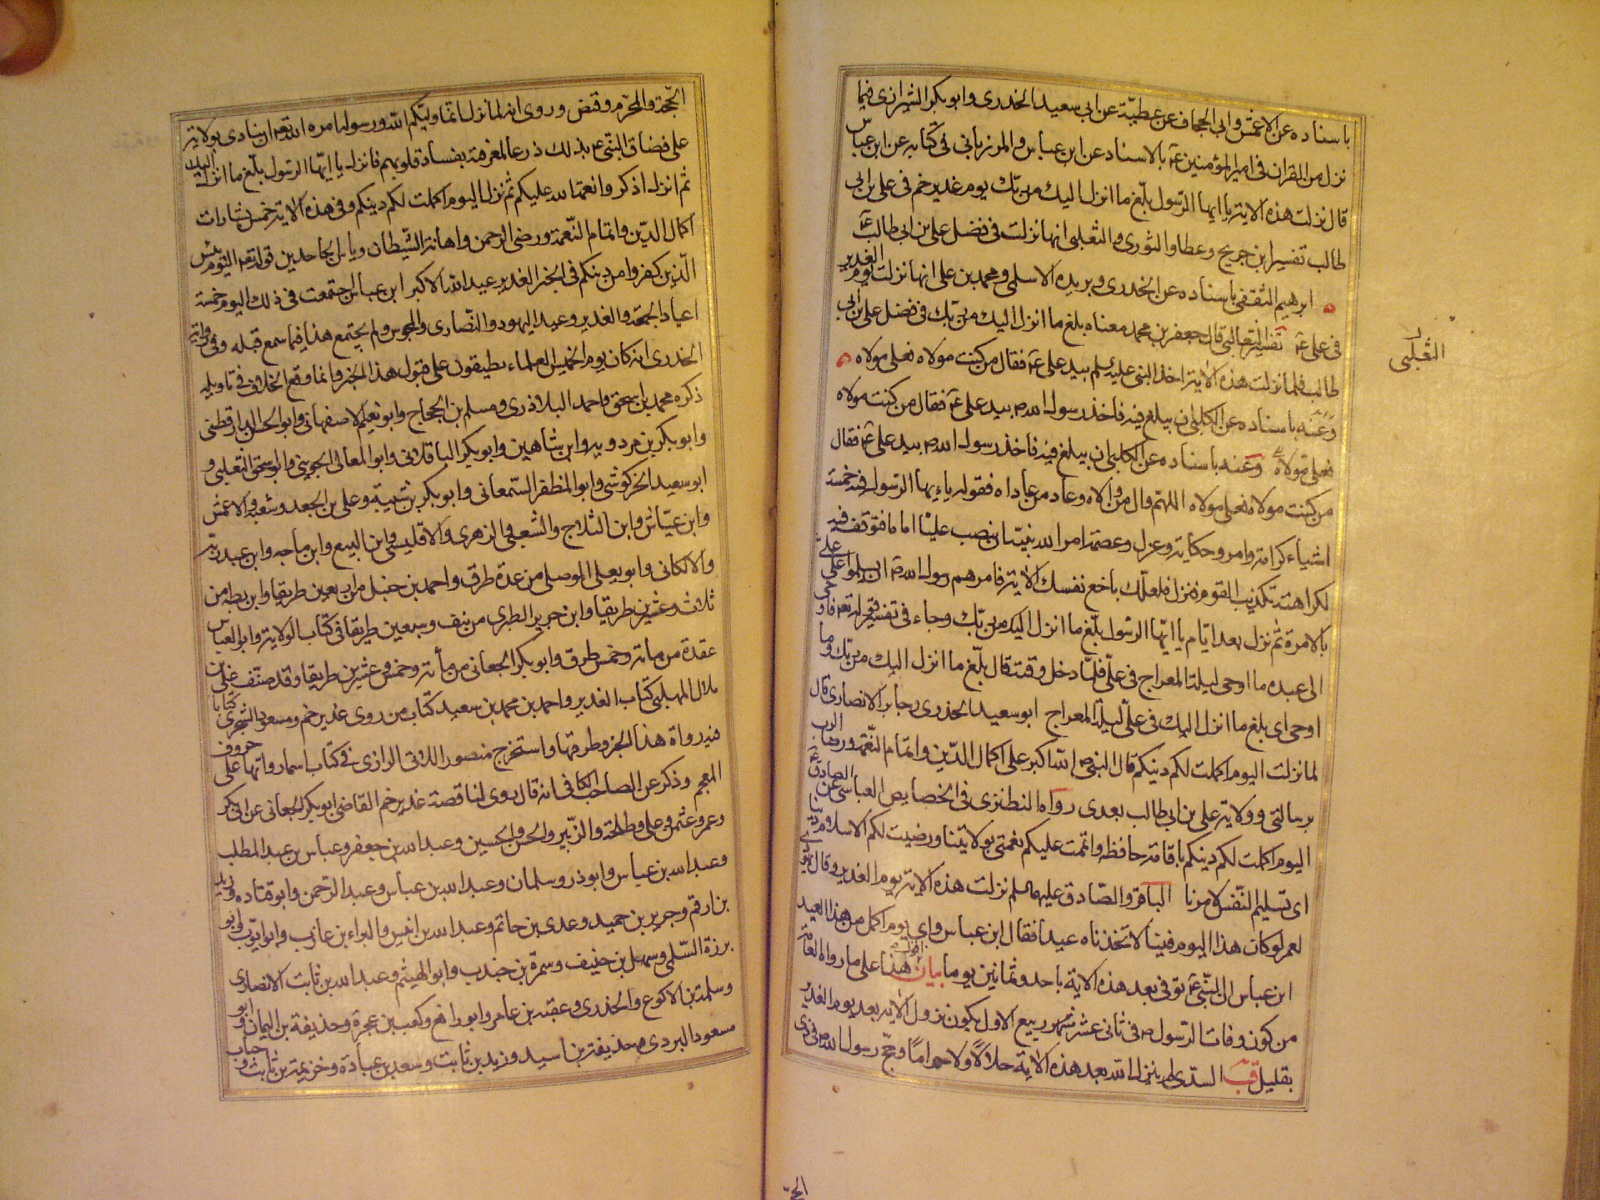 باسناده عن الاعمش وابي الحجاف عن عطية عن ابي سعيد الخدري وابو بكر الشيرازي فيما
نزل من القران في امير المؤمنين ع بالاسناد عن ابن عباس والمرزباني في كتابه عن ابن عباس
قال نزلت هذه الاية يا ايها الرسول بلّغ ما انزل اليك من ربك يوم غدير خم في علي بن ابي
طالب تفسير ابن جريج وعطا والثوري والثعلبي انها نزلت في فضل علي بن ابي طالب ع
ابرهيم الثقفي باسناده عن الخدري وبريده الاسلمي ومحمد بن علي انها نزلت يوم الغدير
في علي ع تفسير الثعالبي قال جعفر بن محمد معناه بلغ ما انزل اليك من ربك في فضل علي بن ابي
الثعلبي
طالب فلما نزلت هذه الاية اخذ النبي عليه سلم بيد علي ع فقال من كنت مولاه فعلي مولاه
وعنه باسناده عن الكلبي ان يبلغ فيه فاخذ رسول الله ص بيد علي ع فقال من كنت مولاه
فعلي مولاه وعنه باسناده عن الكلبي ان يبلغ فيه فاخذ رسول الله ص بيد علي ع فقال
من كنت مولاه فعلي مولاه اللهم وال من والاه وعاد من عاداه فقوله يا ايها الرسول فيه خمسة
اشياء كرامة وامر وحكاية وعزل وعصمة امر الله نبيه ان ينصب عليا اماما فتوقف فيه
لكراهته تكذيب القوم فنزل فلعلك باخع نفسك الاية فامرهم رسول الله ص ان يسلموا على علي
بالامرة ثم نزل بعد ايام يا ايها الرسول بلغ ما انزل اليه من ربك وجاء في تفسير قوله تعه فاوحى
الى عبده ما اوحى ليلة المعراج في علي فلما دخل وقته قال بلّغ ما انزل اليك من ربك وما
اوحى اي بلغ ما انزل اليك في علي ليلة المعراج ابو سعيد الخدري وجابر الانصاري قال
لما نزلت اليوم اكملت لكم دينكم قال النبي ص الله اكبر على اكمال الدين واتمام النعمة ورضا الرب
برسالتي وولاية علي بن ابي طالب بعدي رواه النطنزي في الخصايص العباسي عن الصادق ع
اليوم اكملت لكم دينكم باقامة حافظه واتممت عليكم نعمتي بولايتنا ورضيت لكم الاسلام دينا
اي تسليم النفس لامرنا الباقر والصادق عليهما سلم نزلت هذه الاية يوم الغدير وقال يهودي
لعمر لو كان هذا اليوم فينا لاتخذناه عيدا فقال ابن عباس واي يوم اكمل من هذا العيد
ابن عباس ان النبي ع توفي بعد هذه الاية باحد وثمانين يوما بيان هذا على ما رواه العامة
من كون وفات الرسول ص في ثاني عشر شهر ربيع الاول يكون نزول الاية بعد يوم الغدير
بقليل قب السدي لم ينزل الله بعد هذه الاية حلالا ولا حراما وحج رسول الله ص في ذي
الحجة والمحرم وقبض وروي انه لما نزل انما وليكم الله ورسوله امره الله تعه ان ينادي بولاية
علي فضاق النبي ص بذلك ذرعا لمعرفته بفساد قلوبهم فانزل يا ايها الرسول بلّغ ما انزل اليك
ثم انزل اذكروا نعمة الله عليكم ثم نزل اليوم اكملت لكم دينكم وفي هذه الاية خمس بشارات
اكمال الدين واتمام النعمة ورضى الرحمن واهانة الشيطان وياس الجاحدين قوله تعه اليوم يئس
الذين كفروا من دينكم في الخبر الغدير عيد الله الاكبر ابن عباس اجتمعت في ذلك اليوم خمسة
اعياد الجمعة والغدير وعيد اليهود والنصارى والمجوس ولم يجتمع هذا فيما سمع قبله وفي رواية
الخدري انه كان يوم الخميس العلماء مطبقون على قبول هذا الخبر وانما وقع الخلاف في تاويله
ذكره محمد بن اسحق واحمد البلاذري ومسلم بن الحجاج وابو نعيم الاصفهاني وابو الحسن الدارقطني
وابو بكر بن مردويه وابن شاهين وابو بكر الباقلاني وابو المعالي الجويني وابو اسحق الثعلبي و
ابو سعيد الخركوشي وابو المظفر السمعاني وابو بكر بن شيبة وعلي بن الجعد وشعبة والاعمش
وابن عياش وابن الثلاج والشعبي والزهري والاقليسي وابن البيع وابن ماجه وابن عبد ربه
والالكاني وابو يعلى الموصلي من عدة طرق واحمد بن حنبل من اربعين طريقا وابن بطه من
ثلاث وعشرين طريقا وابن جرير الطبري من نيف وسبعين طريقا في كتاب الولاية وابو العباس
عقدة من مائة وخمس طرق وابو بكر الجعابي من مائة وخمس وعشرين طريقا وقد صنف علي بن
هلال المهلبي كتاب الغدير واحمد بن محمد بن سعيد كتاب من روى غدير خم ومسعود الشجري كتابا
فيه رواة هذا الخبر وطرقها واستخرج منصور اللاتي الرازي في كتابه اسماء رواتها على حروف
المعجم وذكر عن الصاحب الكافي انه قال روى لنا قصة غدير خم القاضي ابو بكر الجعابي عن ابي بكر
وعمر وعثمن وعلي وطلحة والزبير والحسن والحسين وعبد الله بن جعفر وعباس بن عبد المطلب
وعبد الله بن عباس وابو ذر وسلمان وعبد الله بن عباس وعبد الرحمن وابو قتادة وزيد
بن ارقم وجرير بن حميد وعدي بن حاتم وعبد الله بن انيس والبراء بن عازب وابو ايوب وابو
برزة السلمي وسهل بن حنيف وسمرة بن جندب وابو الهيثم وعبد الله بن ثابت الانصاري
وسلمة بن الاكوع والخدري وعقبة بن عامر وابو رافع وكعب بن عجرة وحذيفة بن اليمان وابو
مسعود البدري وحذيفة بن اسيد وزيد بن ثابت وسعد بن عبادة وخزيمة بن ثابت وحباب